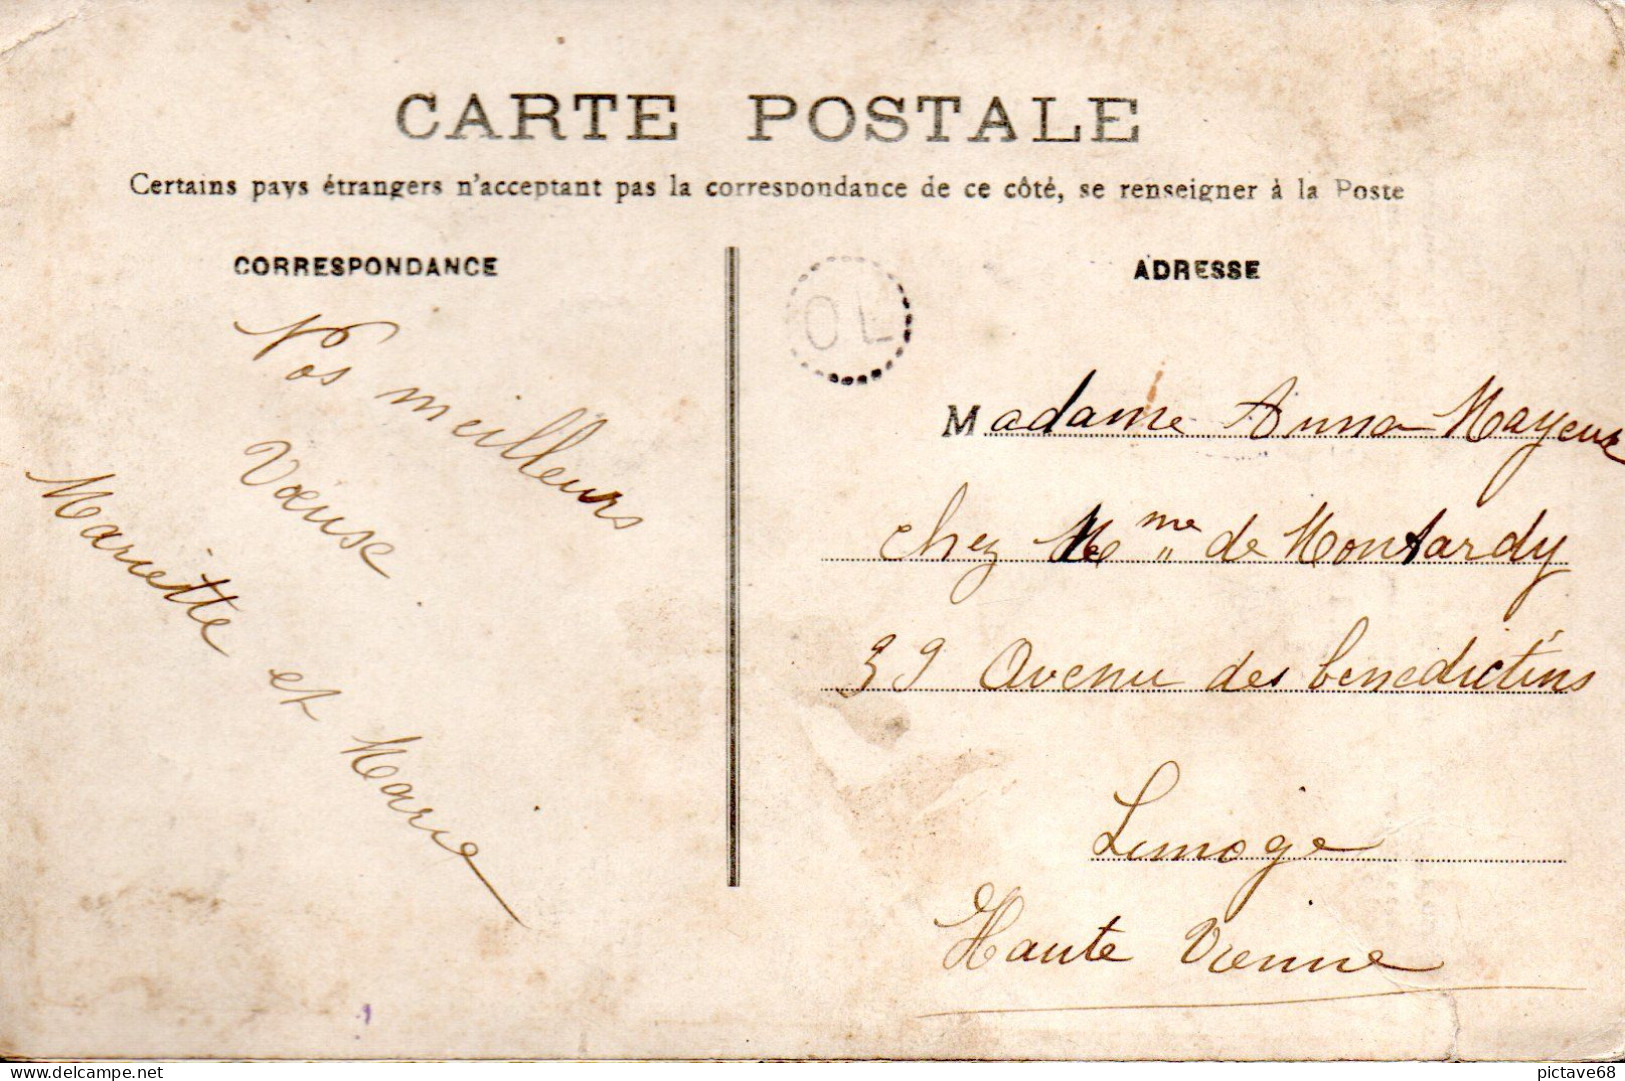 CARTE POSTALE
Certains pays étrangers n'acceptant pas la correspondance de ce côté, se renseigner à la Poste
CORRESPONDANCE
Nos meilleurs
Vœuse
Mariette et Marie
OL
ADRESSE
Madame Anna Mayeux
chez Mme de Montardy
39 Avenu des bénédictins
Limoge
Haute Vienne
delcampe.net
pictave68